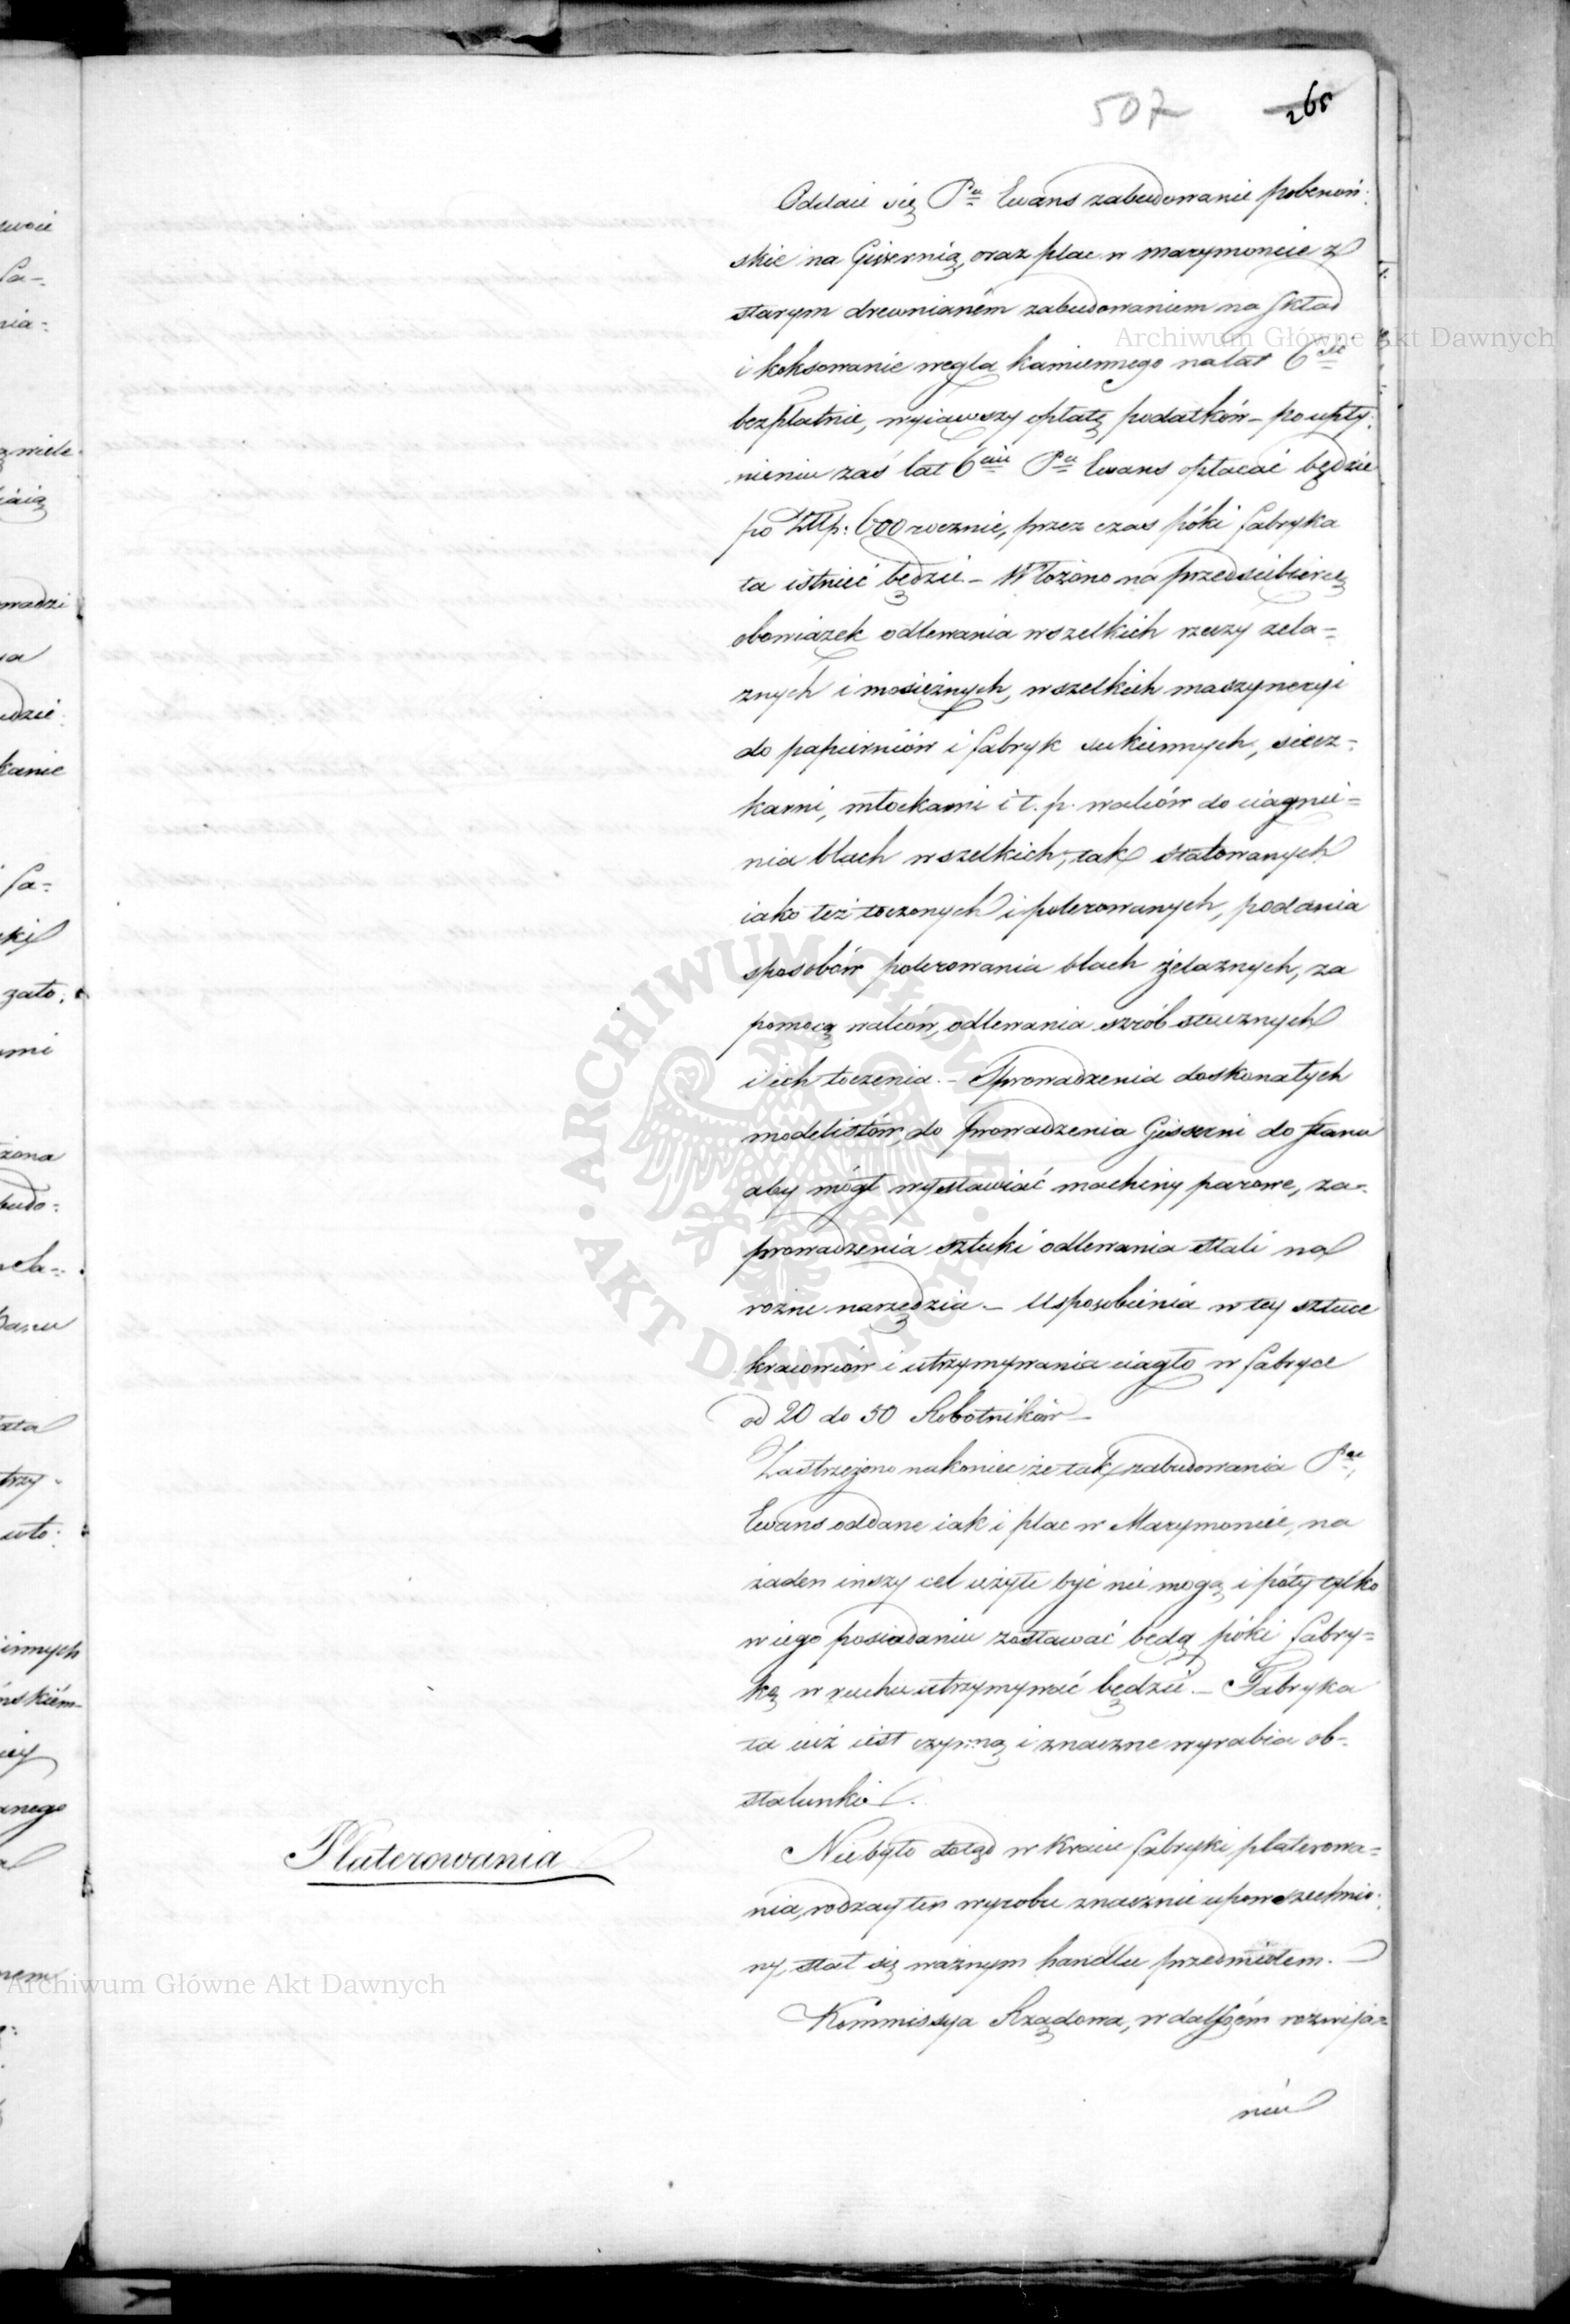 507 265
Oddaie się Pu Ewans zabudowanie pobenoń:
skie na Gisernią, oraz plac w marymoncie z
starym drewnianém zabudowaniem na skład
i koksowanie węgla kamiennego na lat 6
bezpłatnie, wyiąwszy opłatę podatków – po upły:
nieniu zaś lat 6ciu Pu Ewans opłacać będzie
po Złłp: 600 rocznie, przez czas póki fabryka
ta istnieć będzie – Włożono na przedsiebiercę
obowiązek odlewania wszelkich rzeczy żela=
znych i mosiężnych, wszelkich maszyneryi
do papierniów i fabryk sukiennych, siecz=
karni, młockarni i t. p. walców do ciągnie=
nia blach wszelkich, tak stalowanych
iako też toczonych i polerowanych, podania
sposobów polerowania blach żelaznych, za
pomocą walców, odlewania szrób sztucznych
i ich toczenia. – Sprowadzenia doskonałych
modelistów, do prowadzenia Gisserni do stanu
aby mógł wystawiać machiny parowe, za=
prowadzenia sztuki odlewania stali na
rożne narzędzia – Usposobienia w tey sztuce
kraiowców i utrzymywania ciągło w fabryce
od 20 do 50 Robotników –
Zastrzeżono nakoniec że tak zabudowania Pu
Ewans oddane iak i plac w Marymoncie, na
żaden inszy cel użyte być nie mogą i póty tylko
w iego posiadaniu zostawać będą póki fabry=
kę w ruchu utrzymywać będzie. – Fabryka
ta iuż iest czynną i znaczne wyrabia ob=
stalunki.
Platerowania
Niebyło dotąd w Kraiu fabryki platerowa=
nia, rodzay ten wyrobu znacznie upowszechnio:
ny, stał się ważnym handlu przedmiotem. –
Kommissya Rządowa, w dalszém rozwija=
niu
Archiwum Główne Akt Dawnych
Archiwum Główne Akt Dawnych
ARCHIWUM GŁÓWNE
AKT DAWNYCH